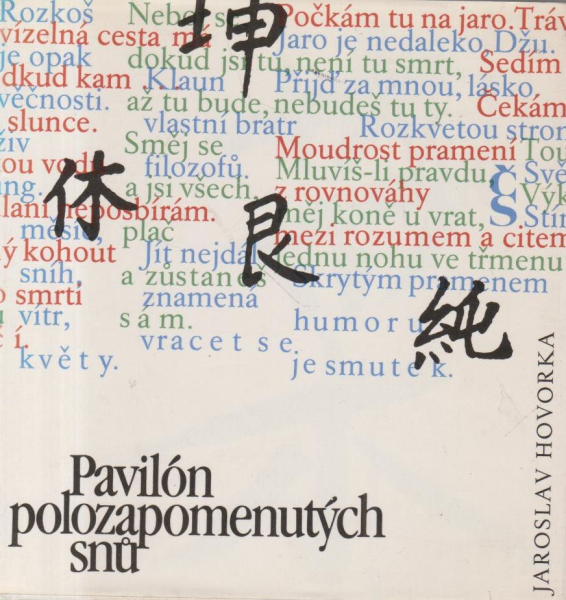 坤
休
艮
純
Rozkoš
vízelná cesta má
je opak
dkud kam
věčnosti.
slunce.
živ
ou vodu
ung.
laní neposbírám.
měsíc,
ý kohout
sníh,
o smrti
vítr,
čí.
květy.
Neboj s
dokud jsi tu, není tu smrt,
Klaun
až tu bude, nebudeš tu ty.
vlastní bratr
Směj se
filozofů.
a jsi všech,
plač
Jít nejdál
a zůstaneš
znamená
sám.
vracet se.
Počkám tu na jaro. Tráv
Jaro je nedaleko, Džu.
Sedím
Přijď za mnou, lásko,
Čekám
Rozkvetou strom
Moudrost pramení
Tou
Mluvíš-li pravdu,
č
Svě
z rovnováhy
Výk
měj koně u vrat,
Š
Stín
mezi rozumem a citem
jednu nohu ve třmenu
Skrytým pramenem
humoru
je smutek.
Pavilón
polozapomenutých
snů
JAROSLAV HOVORKA